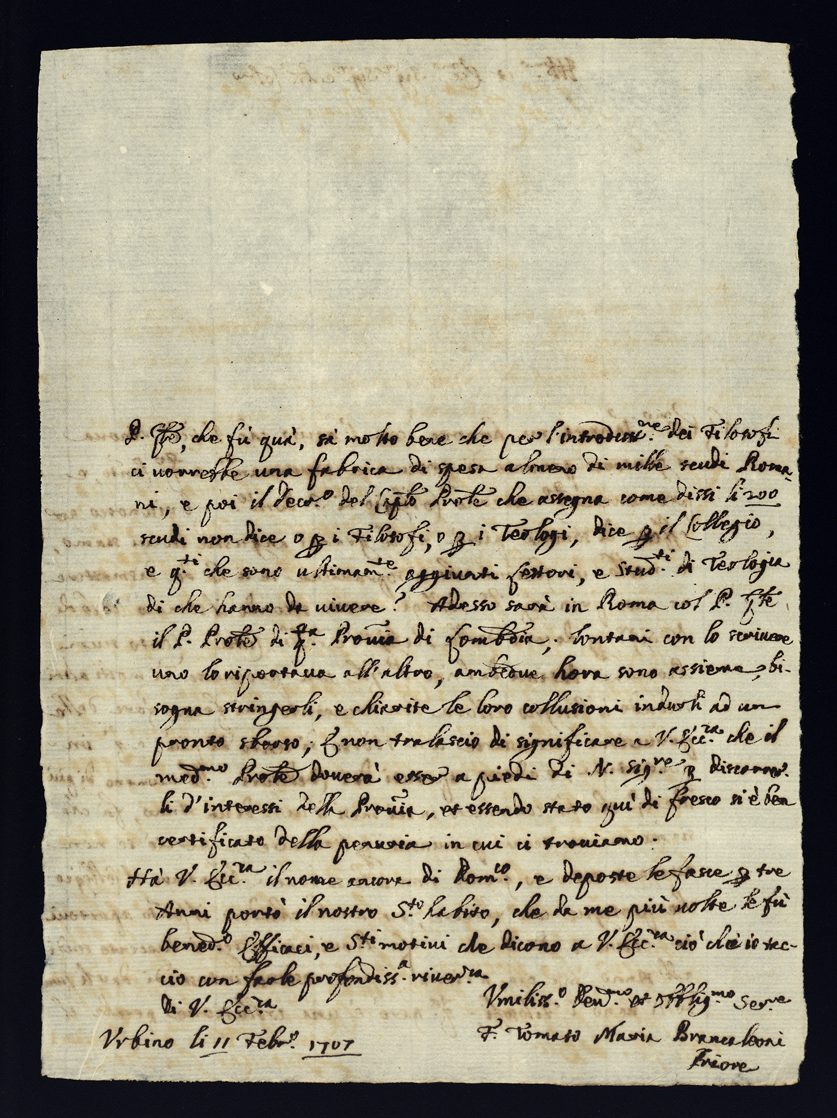 P. Gñle, che fù quà, sà molto bene che per l'introduz.ne dei Filosofi
ci vorrebbe una fabrica di spesa almeno di mille scudi Roma-
ni, e poi il decr.o del Cap̃lo Proñle che assegna come dissi li 200
scudi non dice o p i Filosofi, o p i Teologi, dice p il Collegio,
e q.ti che sono ultimam.te aggiunti Lettori, e Stud.ti di Teologia
di che hanno da vivere? Adesso sarà in Roma col P. Gñle
il P. Proñle di Proũia di Lombdia, lontani con lo scrivere
uno lo riportava all'altro, ambedue hora sono assieme, bi-
sogna stringerli, e chiarite le loro collusioni indurli ad un
pronto sborso; E non tralascio di significare a V. Ecc.za che il
med.mo Proñle doverà esser a piedi di N. Sig.re p discorrer-
li d'interessi della Proũia, et essendo stato quì di fresco si è ben
certificato della penuria in cui ci troviamo.
Hà V. Ecc.za il nome ancora di Dom.co, e deposte le fasce p tre
Anni portò il nostro S.to habito, che da me più volte le fù
bened.o Efficaci, e S.ti motivi che dicono a V. Ecc.za ciò che io tac-
cio con farle profondiss.a river.za
di V. Ecc.za
Umiliss.o Dev.mo et Obblig.mo Ser.re
Urbino li 11 Febr.o 1707
F. Tomaso Maria Brancaleoni
Priore